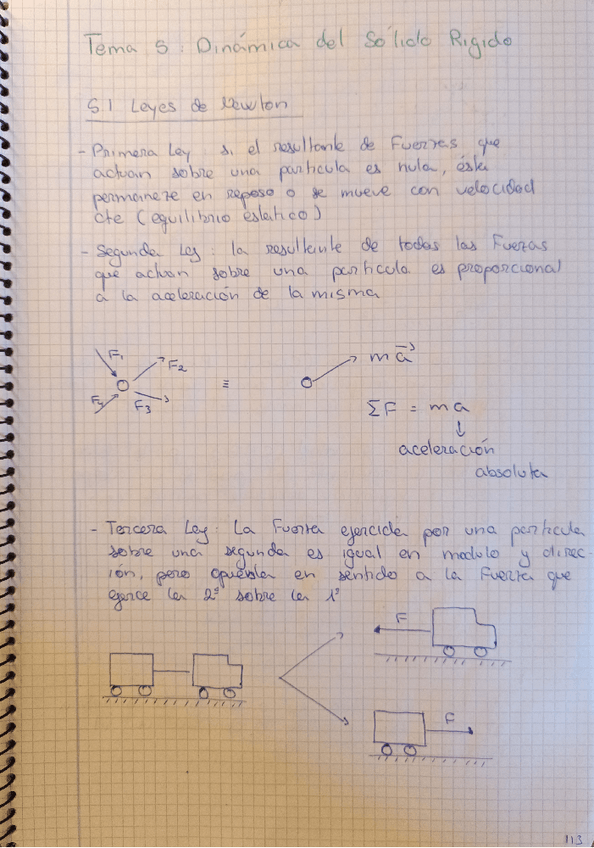 Tema 5: Dinámica del Sólido Rígido
5.1 Leyes de Newton
- Primera Ley: si el resultante de Fuerzas que
actuan sobre una particula es nula, ésta
permaneze en reposo o se mueve con velocidad
cte (equilibrio estatico)
- Segunda Ley: la resultante de todas las Fuerzas
que actuan sobre una particula es proporcional
a la aceleración de la misma
F₁
F₂
F₃
F₄
≡
m a⃗
ΣF = ma
↓
aceleración
absoluta
- Tercera Ley: La Fuerza ejercida por una particula
sobre una segunda es igual en modulo y direc-
ión, pero opuesta en sentido a la Fuerza que
ejerce la 2ª sobre la 1ª
F
F
113